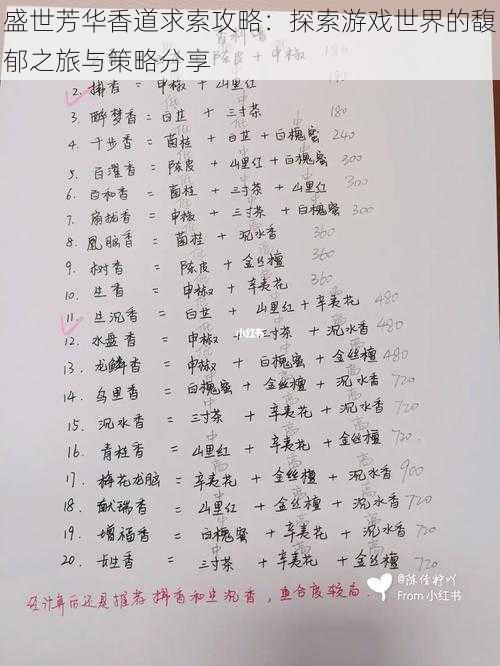 盛世芳华香道求索攻略：探索游戏世界的馥
郁之旅与策略分享
陈皮 + 申椒
2. 拂香 = 申椒 + 山里红 180
3. 醉梦香 = 白芷 + 三寸茶 180
4. 千步香 = 菌桂 + 白芷 + 白槐蜜 240
5. 百濯香 = 陈皮 + 山里红 + 白槐蜜 300
6. 百和香 = 菌桂 + 三寸茶 + 山里红 300
7. 扇坠香 = 申椒 + 三寸茶 + 白槐蜜 300
8. 凰脑香 = 菌桂 + 沉水香 360
9. 树香 = 陈皮 + 金丝檀 360
10. 生香 = 申椒 + 辛夷花 360
11. 生沉香 = 白芷 + 山里红 + 辛夷花 480
小红书
12. 水盘香 = 申椒 + 三寸茶 + 沉水香 480
13. 龙鳞香 = 申椒 + 白槐蜜 + 金丝檀 480
14. 乌里香 = 白槐蜜 + 金丝檀 + 沉水香 720
15. 沉水香 = 三寸茶 + 辛夷花 + 沉水香 720
16. 青桂香 = 山里红 + 辛夷花 + 金丝檀 720
17. 梅花龙脑 = 辛夷花 + 金丝檀 + 沉水香 900
18. 献瑞香 = 山里红 + 金丝檀 + 沉水香 720
19. 增福香 = 白槐蜜 + 辛夷花 + 沉水香 720
20. 长生香 = 三寸茶 + 辛夷花 + 金丝檀 720
经计算后还是推荐拂香和生沉香，重合度较高.
From 小红书